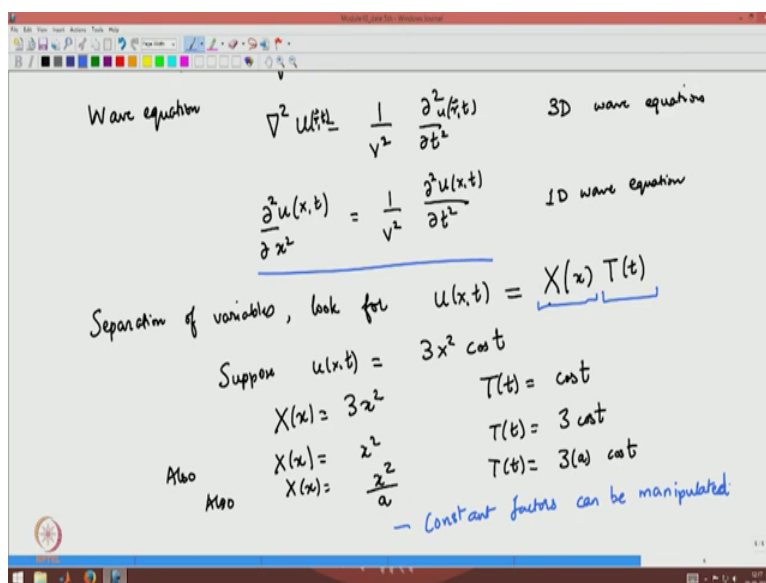 Module10_date 5th - Windows Journal
File Edit View Insert Actions Tools Help
Page Width
B I
Wave equation ∇² u(r⃗,t) = 1/v² ∂²u(r⃗,t)/∂t² 3D wave equations
∂²u(x,t)/∂x² = 1/v² ∂²u(x,t)/∂t² 1D wave equation
Separation of variables, look for u(x,t) = X(x) T(t)
Suppose u(x,t) = 3x² cost
X(x) = 3x² T(t) = cost
Also X(x) = x² T(t) = 3 cost
Also X(x) = x²/a T(t) = 3(a) cost
- Constant factors can be manipulated.
NPTEL